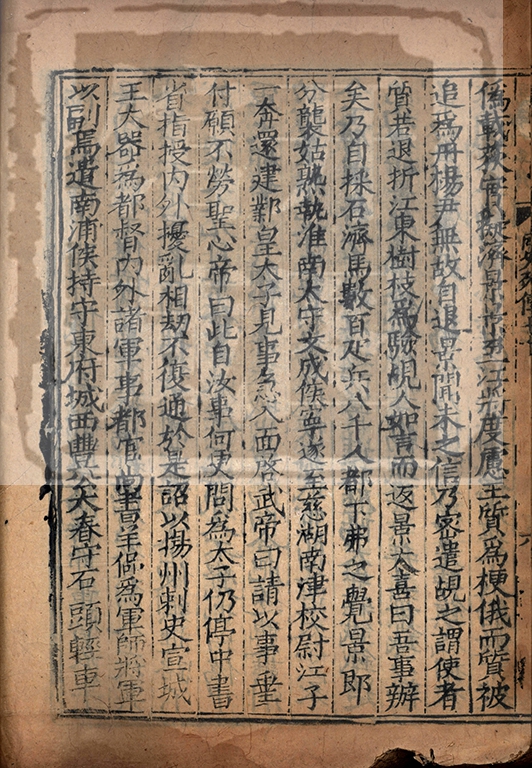 偽載荻實以濟景景至江將度慮王質為梗俄而質被
追為丹楊尹無故自退景聞未之信乃密遣覘之謂使者
質若退折江東樹枝為驗覘人如言而返景大喜曰吾事辦
矣乃自採石濟馬數百疋兵八千人都下弗之覺景即
分襲姑熟執淮南太守文成侯寧遂至慈湖南津校尉江子
一奔還建鄴皇太子見事急入面啓武帝曰請以事垂
付願不勞聖心帝曰此自汝事何更問為太子仍停中書
省指授内外擾亂相劫不復通於是詔以揚州刺史宣城
王大器為都督内外諸軍事都官尚書羊侃為軍師將軍
以副焉遣南浦侯推守東府城西豐公大春守石頭輕車